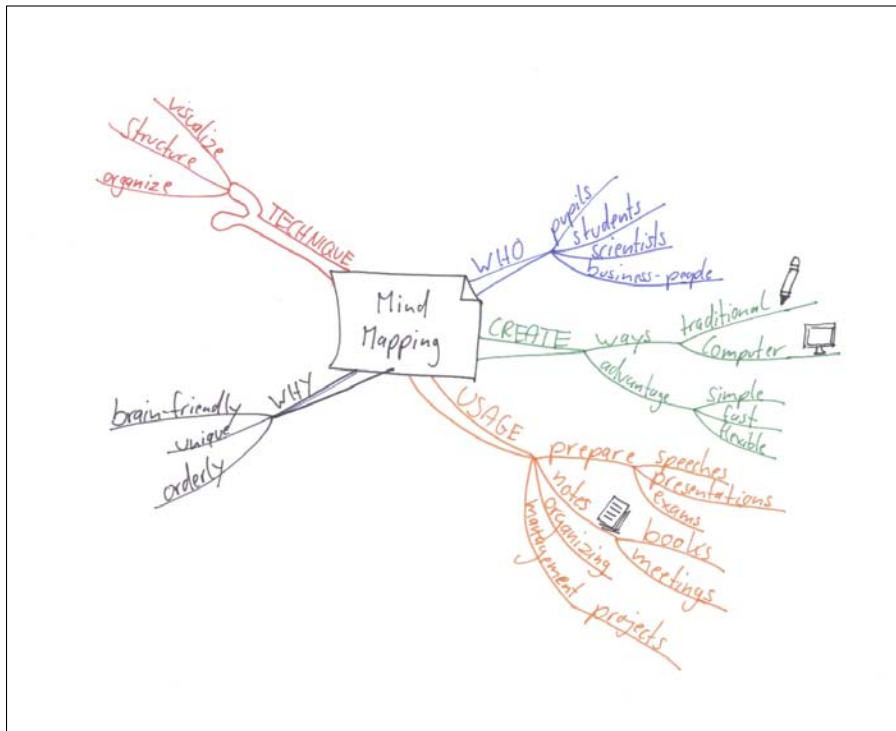 Mind
Mapping
TECHNIQUE
visualize
structure
organize
WHO
pupils
students
scientists
business-people
CREATE
ways
traditional
computer
advantage
simple
fast
flexible
USAGE
prepare
speeches
presentations
exams
notes
books
meetings
organizing
management
projects
WHY
brain-friendly
unique
orderly